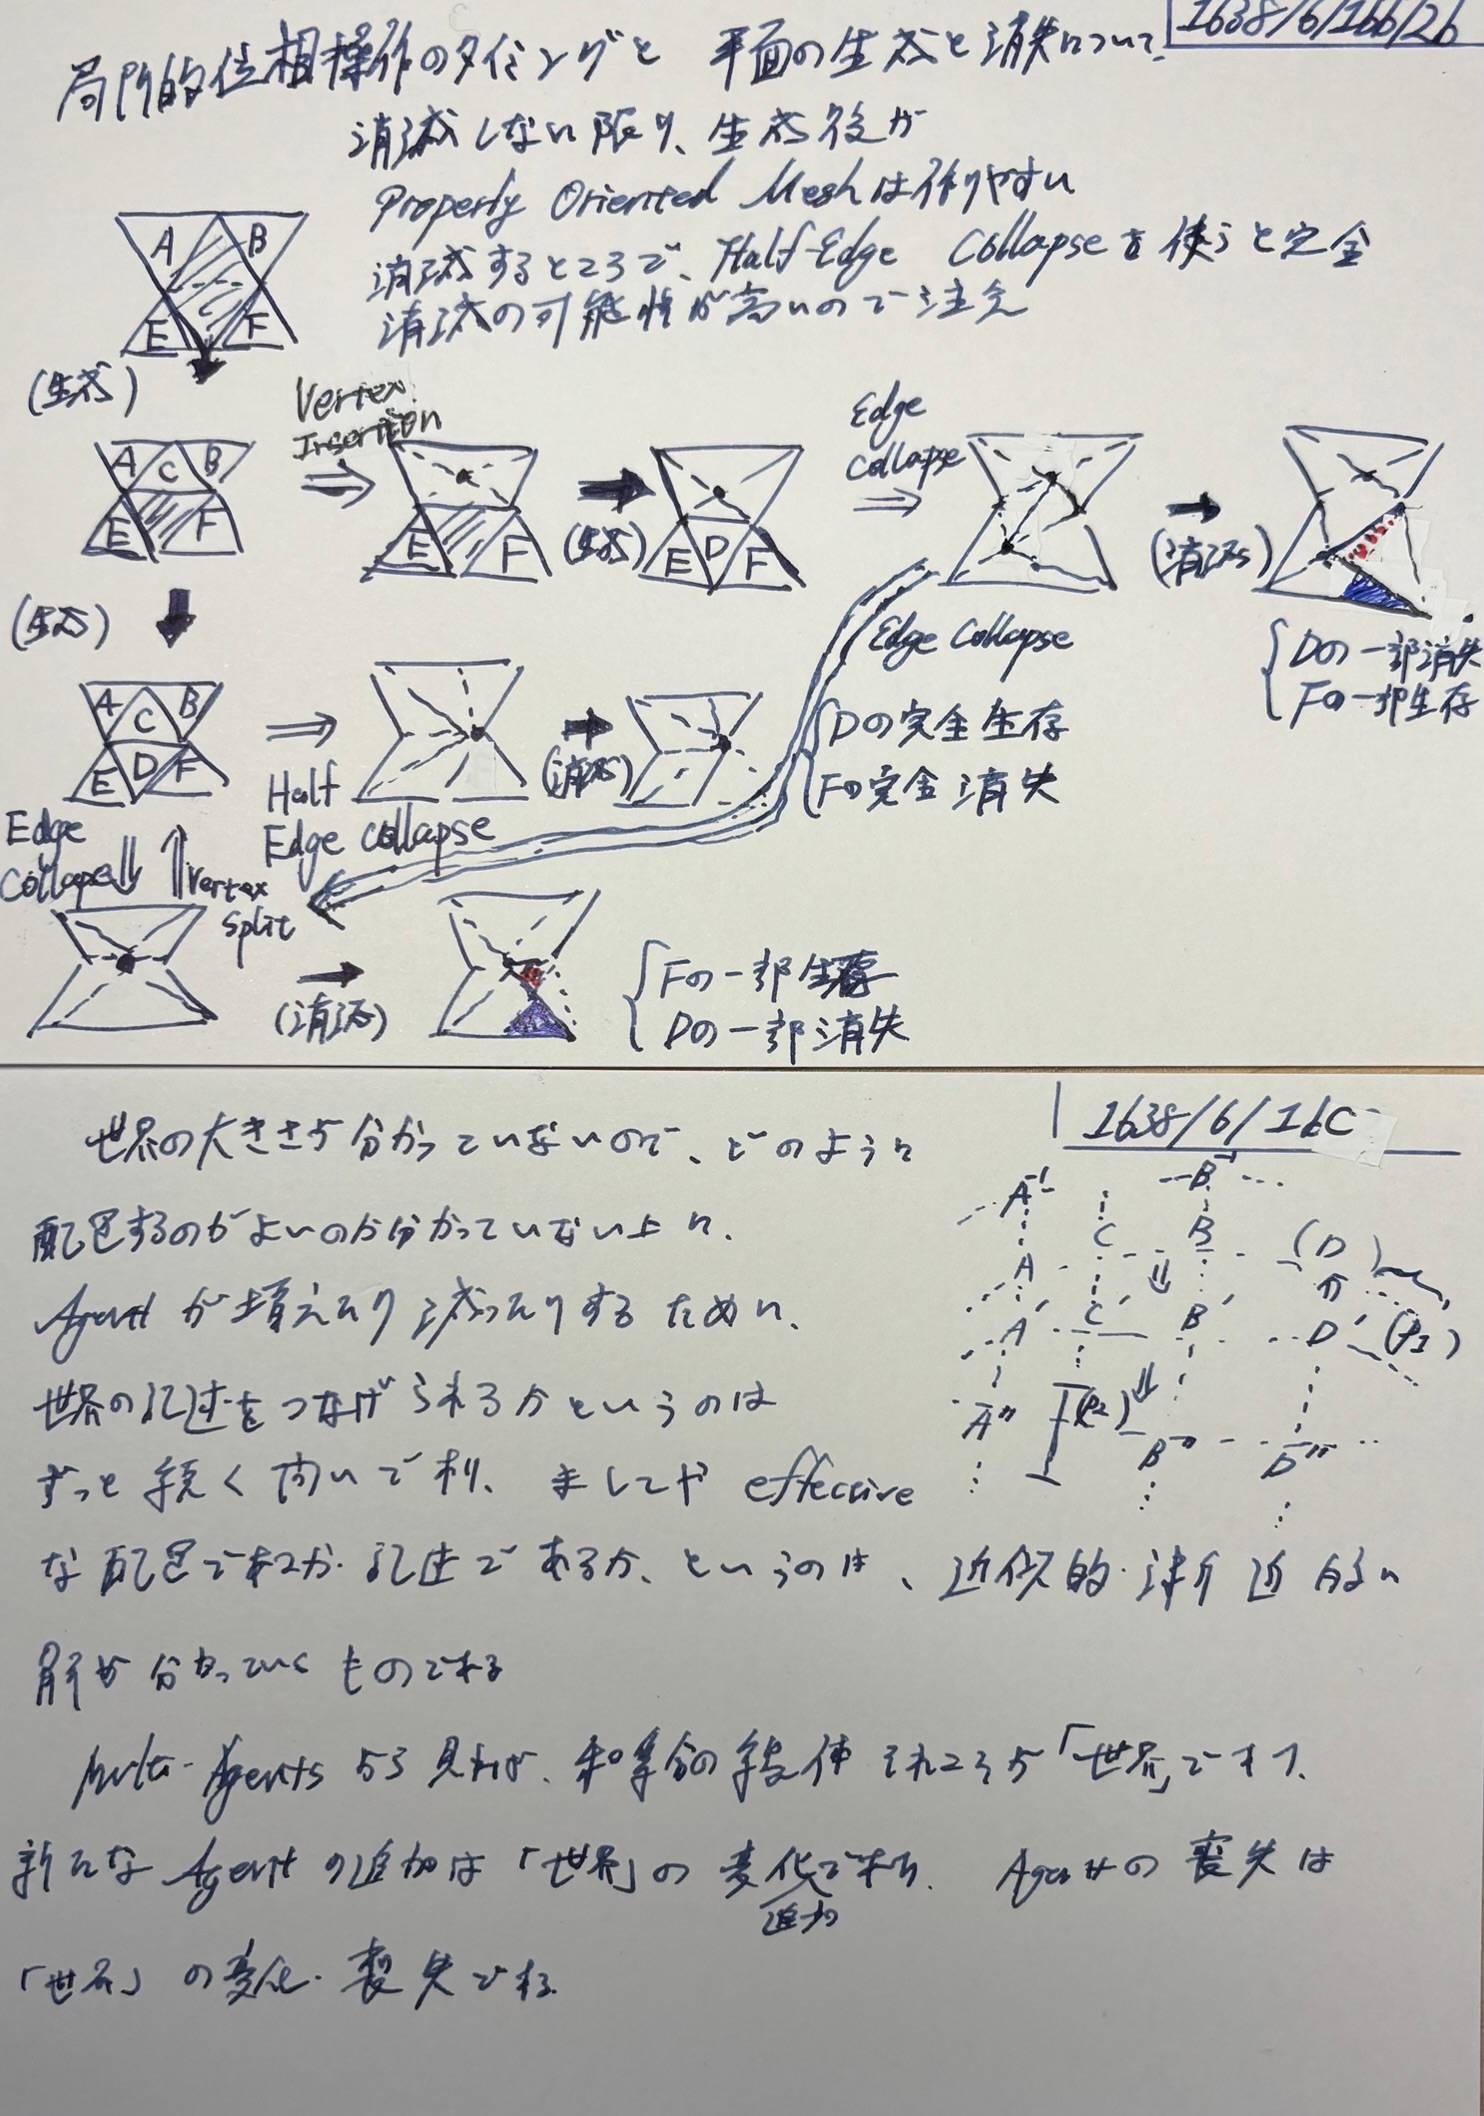 1638/6/16b/2b
局所的位相操作のタイミングと 平面の生成と消失について
消滅しない限り、生成後が
Properly Oriented Meshは作りやすい
消滅するところで、Half-Edge Collapseを使うと完全
消滅の可能性が高いので注意
A B
C
E F
(生成)
Vertex Insertion
Edge Collapse
A C B
E F
E F
(生成)
E D F
(消滅)
(生成)
Edge Collapse
Dの一部消失
Fの一部生存
A C B
E D F
Half Edge Collapse
(消滅)
Dの完全生存
Fの完全消失
Edge Collapse
Vertex Split
(消滅)
Fの一部生存
Dの一部消失
1638/6/16C
世界の大きさが分かっていないので、どのように
配置するのがよいのか分かっていない上に、
Agentが増えたり減ったりするために、
世界の記述をつなげられるかというのは
ずっと続く問いであり、ましてや effective
な配置であるか・記述であるか、というのは、近似的・漸近的に
解が分かっていくものである
Multi-Agentsから見れば、 それこそが「世界」であり、
新たなAgentの追加は「世界」の変化である. Agentの喪失は
追加
「世界」の変化・喪失である
A⁻¹ B⁻¹
C B (D)
A
A' C' B' D' (P1)
A'' (P2) B'' D''